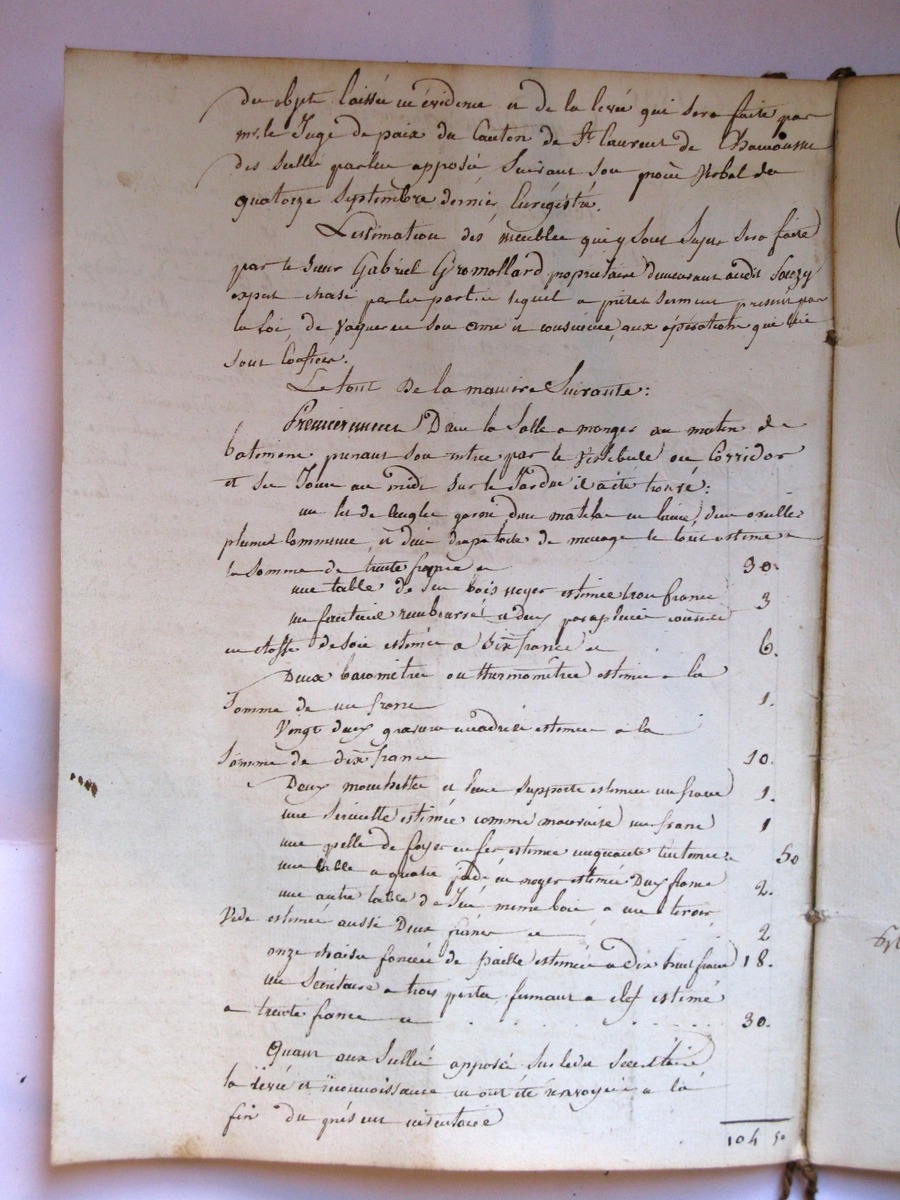 des objets laissés en évidence et de la levée qui sera faite par
mr. le Juge de paix du Canton de St. Laurent de Chamousset
des scellés par lui apposés, suivant son procès verbal du
quatorze Septembre dernier Enrégistré.
L'estimation des meubles qui y sont sujets sera faite
par le Sieur Gabriel Gromollard propriétaire demeurant audit Souzy
expert choisi par les parties lequel a prêté serment prescrit par
la Loi, de vaquer en son ame et conscience, aux opérations qui lui
sont Confiées.
Le tout de la maniere Suivante:
Premierement Dans la Salle a manger au matin du
batiment prenant son entrée par le Vestibule ou Corridor
et ses Jours au midi sur le Jardin il a été trouvé:
un lit de garni d'un matelas en laine, d'un oreiller
plumes Commune, et deux de menage le tout estimé a
la somme de trente francs ci 30.
une table de Jeu bois noyer estimée trois francs 3
un fauteuil rembourré et deux parapluies
en étoffe de soie estimés a Six francs ci 6.
Deux barométres ou thermométres estimés a la
Somme de un franc 1.
Vingt deux gravures encadrées estimées a la
Somme de dix francs 10.
Deux mouchettes et leurs supports estimés un franc 1.
une estimée comme mauvaise un franc 1
une pelle de foyer en fer estimée cinquante Centimes 50
une table a quatre pieds en noyer estimée Deux francs 2.
une autre table de même bois a un tiroir
Vide estimée aussi Deux francs ci 2
onze chaises foncées de paille estimées a Dix huit francs 18.
un Secrétaire a trois portes fermant a clef estimé
a trente francs ci 30.
Quant aux Scellés apposés sur ledit Secrétaire
la levée et reconnoissance en ont été renvoyées a la
fin du présent inventaire
104 50